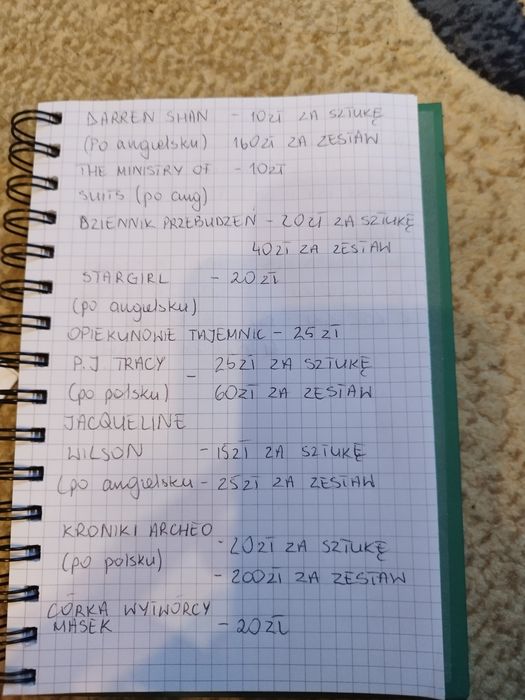 DARREN SHAN - 10zł ZA SZTUKĘ
(Po angielsku) 160zł ZA ZESTAW
THE MINISTRY OF - 10zł
SUITS (po ang)
DZIENNIK PRZEBUDZEŃ - 20zł ZA SZTUKĘ
40zł ZA ZESTAW
STARGIRL - 20zł
(po angielsku)
OPIEKUNOWIE TAJEMNIC - 25 zł
P.J. TRACY - 25zł ZA SZTUKĘ
(po polsku) 60zł ZA ZESTAW
JACQUELINE
WILSON - 15zł ZA SZTUKĘ
(po angielsku - 25zł ZA ZESTAW
KRONIKI ARCHEO
- 20zł ZA SZTUKĘ
(po polsku)
- 200zł ZA ZESTAW
CÓRKA WYTWÓRCY
MASEK - 20zł